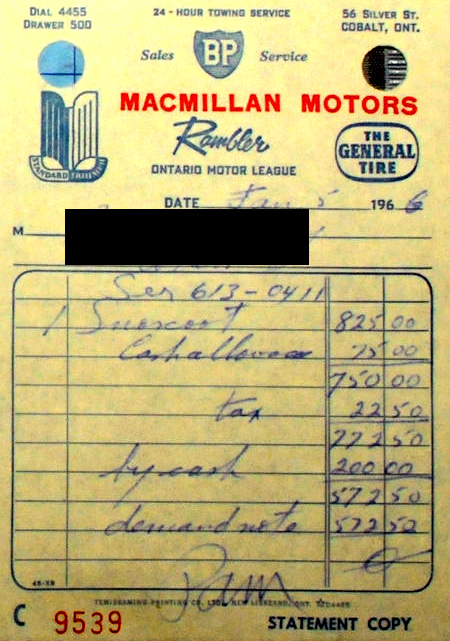 DIAL 4455 24-HOUR TOWING SERVICE 56 SILVER ST.
DRAWER 500 COBALT, ONT.
Sales BP Service
MACMILLAN MOTORS
Rambler
STANDARD TRIUMPH
ONTARIO MOTOR LEAGUE
THE GENERAL TIRE
DATE Jan 5 1966
M
Ser 613-0411
1 Snoscoot 825 00
Cash allowance 75 00
750 00
tax 22 50
772 50
by cash 200 00
572 50
demand note 572 50
0
45-XB
TEMISKAMING PRINTING CO. LTD., NEW LISKEARD, ONT.
C 9539 STATEMENT COPY